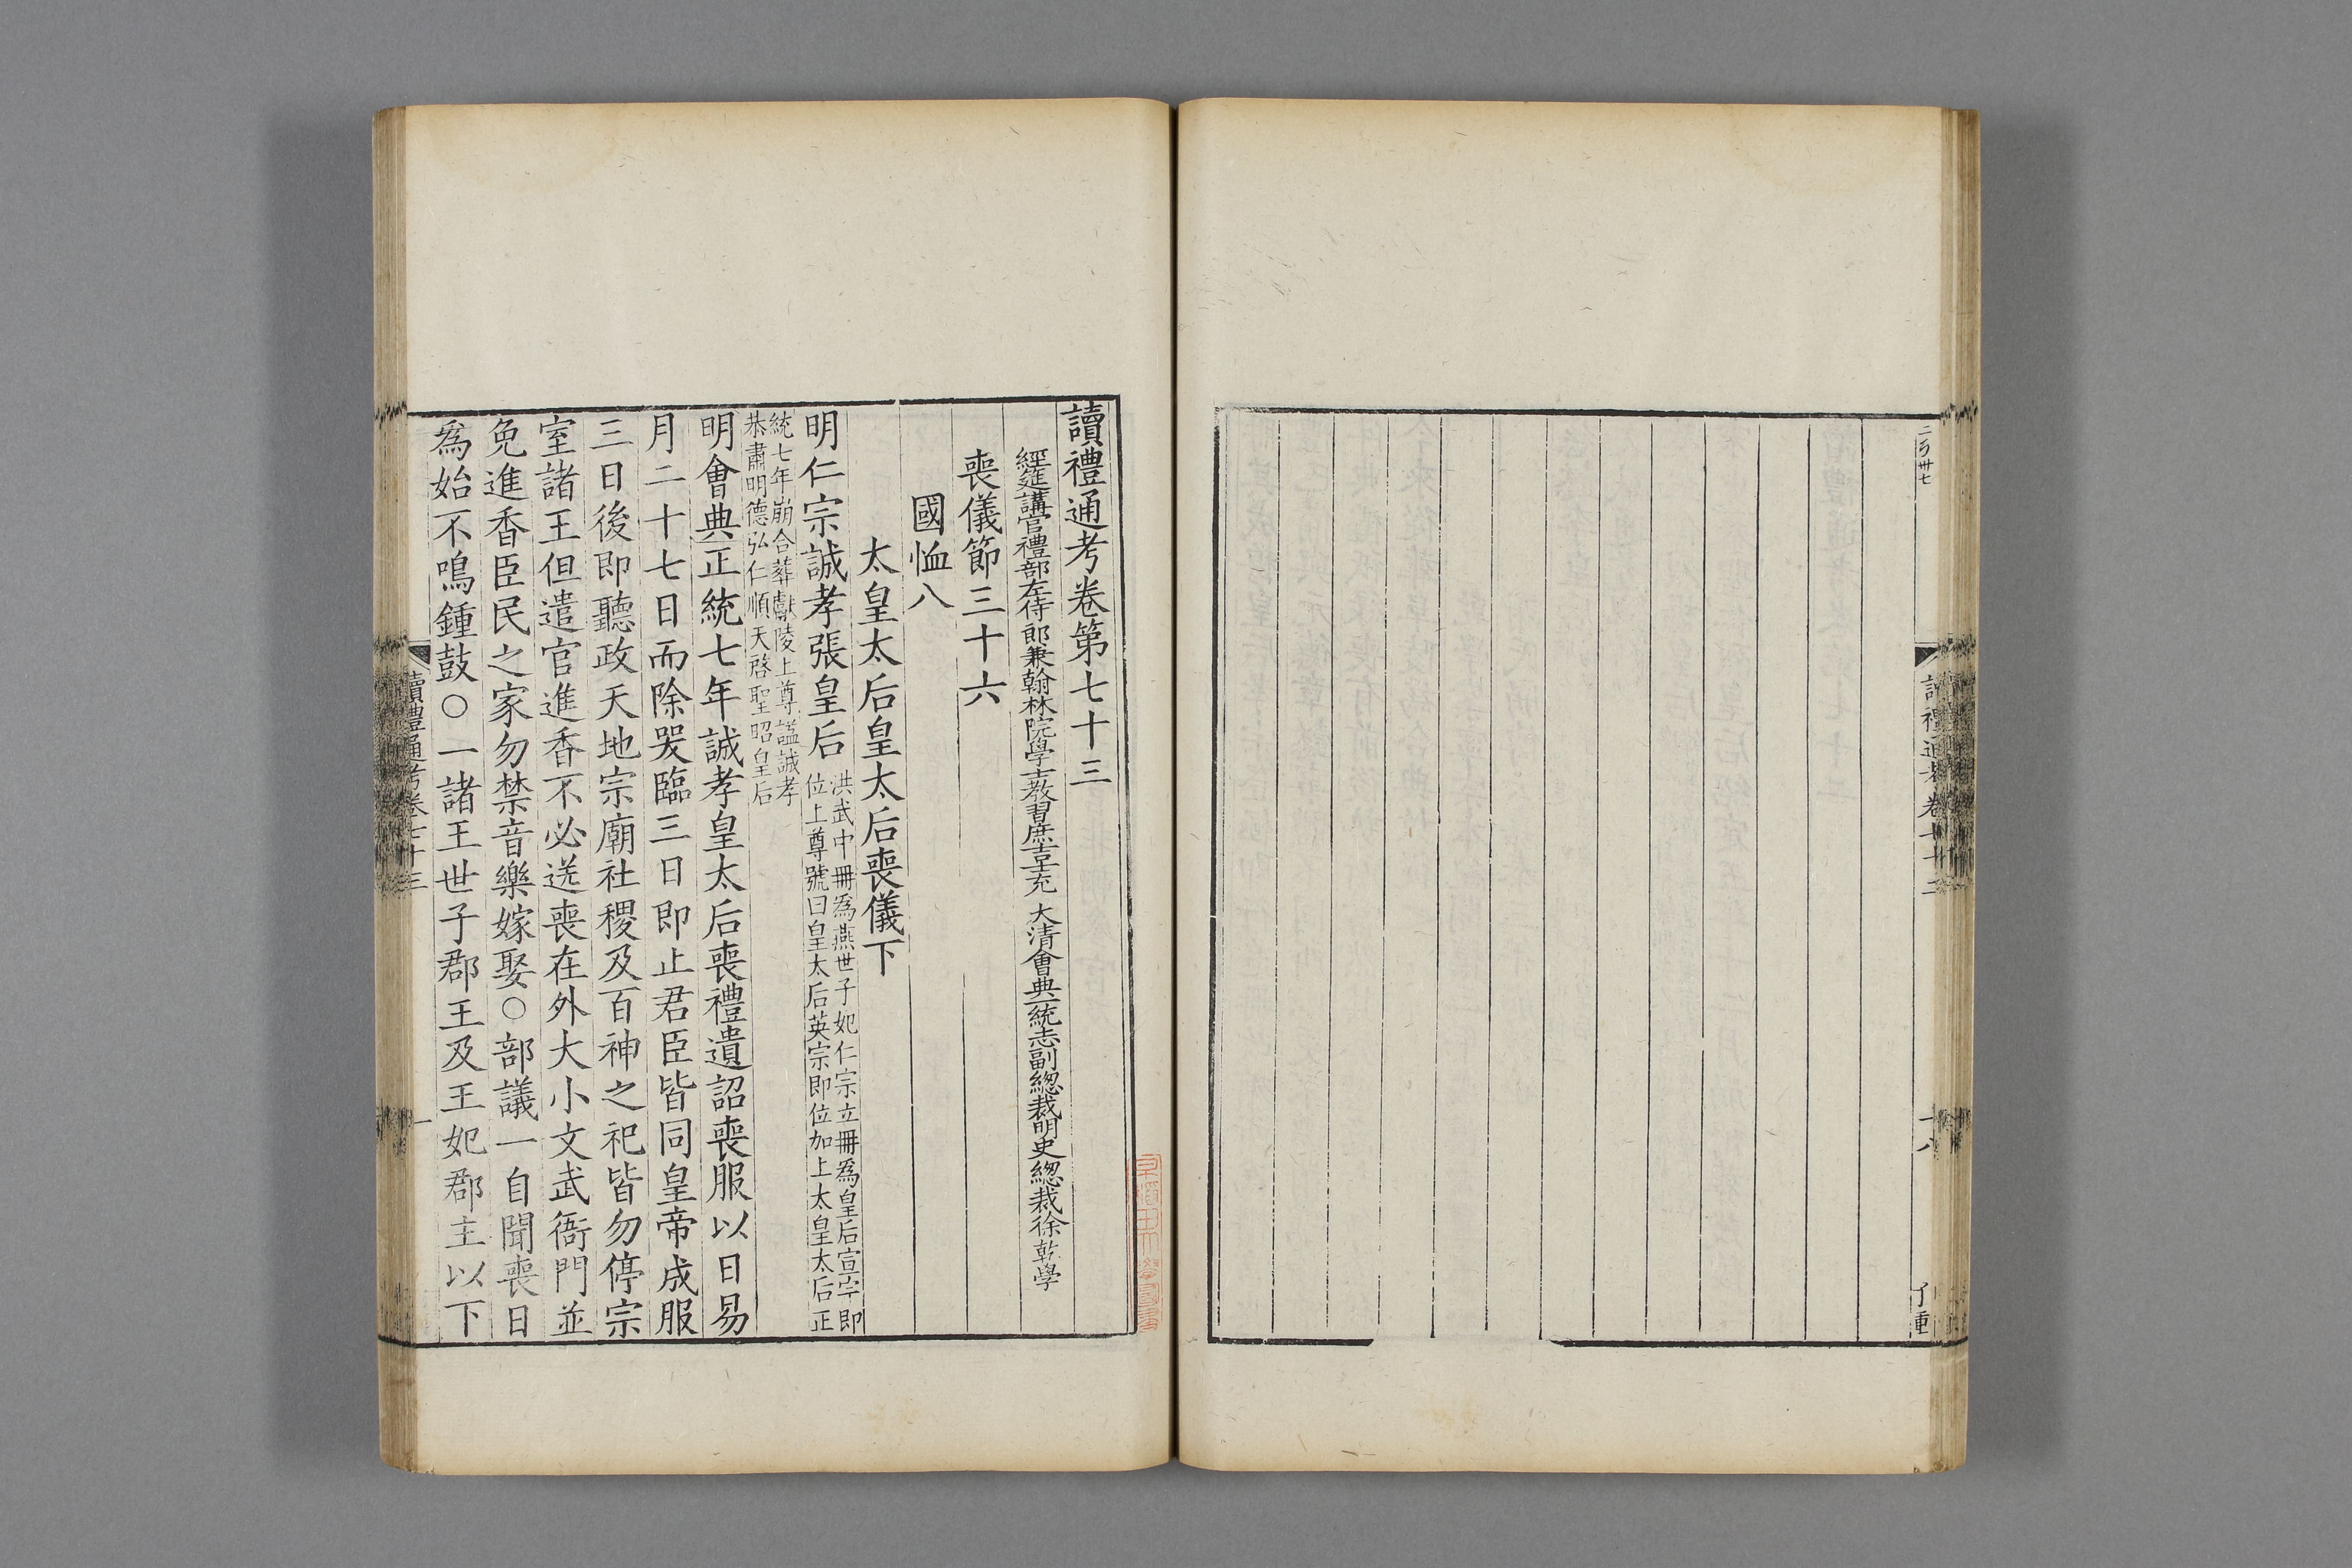 二万卅七
讀禮通考卷七十二
十八
讀禮通考卷第七十三
經筵講官禮部左侍郎兼翰林院學士教習庶吉士充　大清會典一統志副總裁明史總裁徐乾學
喪儀節三十六
國恤八
太皇太后皇太后喪儀下
明仁宗誠孝張皇后
洪武中冊爲燕世子妃仁宗立冊爲皇后宣宗即
位上尊號曰皇太后英宗即位加上太皇太后正
統七年崩合葬獻陵上尊謚誠孝
恭肅明德弘仁順天啓聖昭皇后
明會典正統七年誠孝皇太后喪禮遺詔喪服以日易
月二十七日而除哭臨三日即止君臣皆同皇帝成服
三日後即聽政天地宗廟社稷及百神之祀皆勿停宗
室諸王但遣官進香不必送喪在外大小文武衙門並
免進香臣民之家勿禁音樂嫁娶○部議一自聞喪日
爲始不鳴鍾鼓○一諸王世子郡王及王妃郡主以下
讀禮通考卷七十三
一